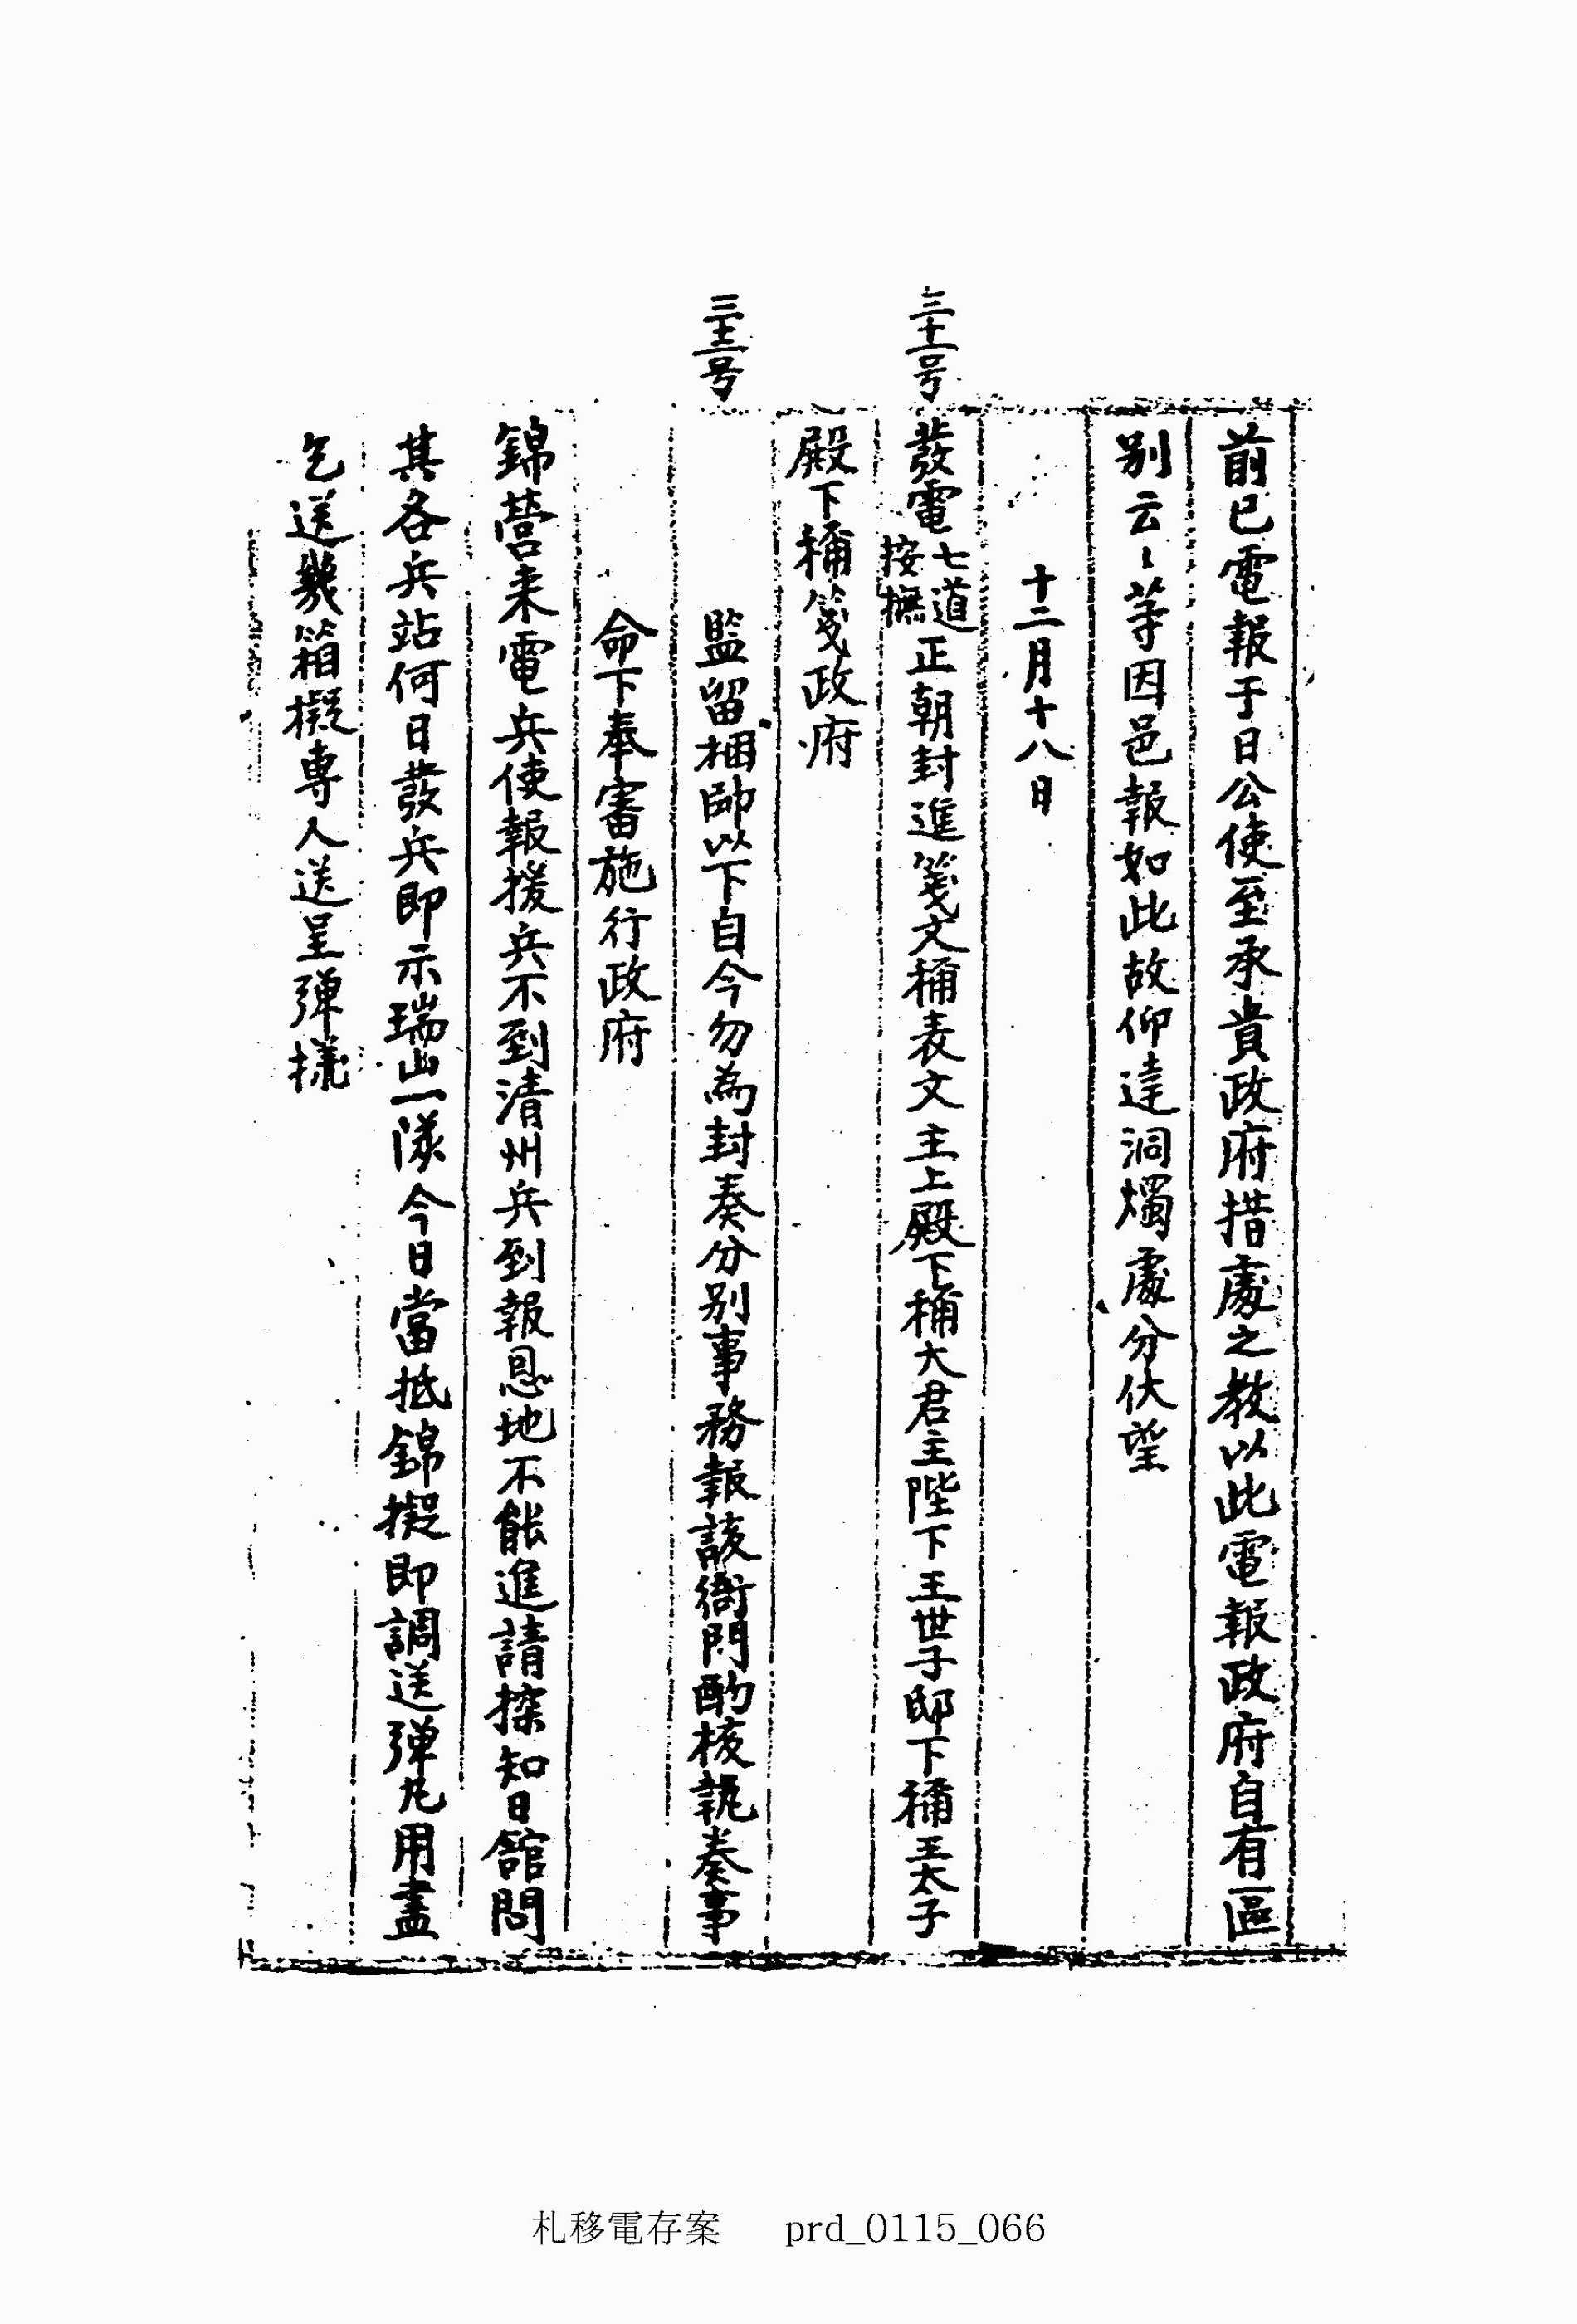 前已電報于日公使至承貴政府措處之教以此電報政府自有區
別云〻等因邑報如此故仰達洞燭處分伏望
十二月十八日
三十一号
發電七道按撫正朝封進箋文稱表文主上殿下稱大君主陛下王世子邸下稱王太子
殿下稱箋政府
三十二号
監留梱帥以下自今勿為封奏分別事務報該衙門酌核執奏事
命下奉審施行政府
錦營来電兵使報援兵不到清州兵到報恩地不能進請探知日館問
其各兵站何日發兵即示瑞山一隊今日當抵錦擬即調送弹丸用盡
乞送幾箱擬專人送呈弹樣
札移電存案 prd_0115_066